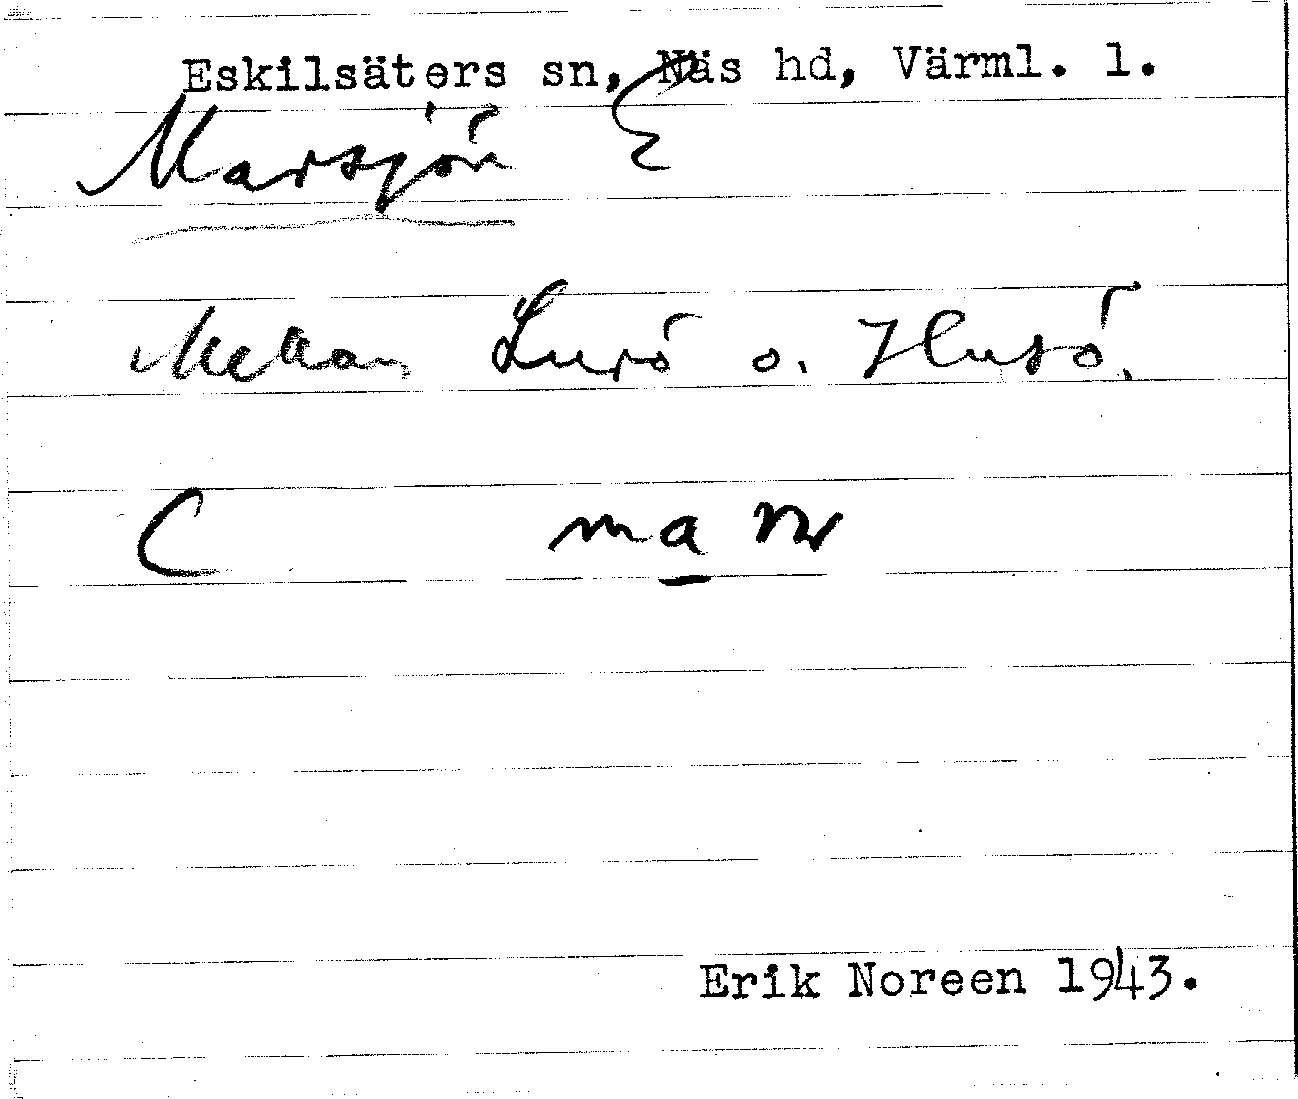 Eskilsäters sn, Näs hd, Värml. l.
Marsjön E
Mellan Lurö o. Husö.
C
Erik Noreen 1943.